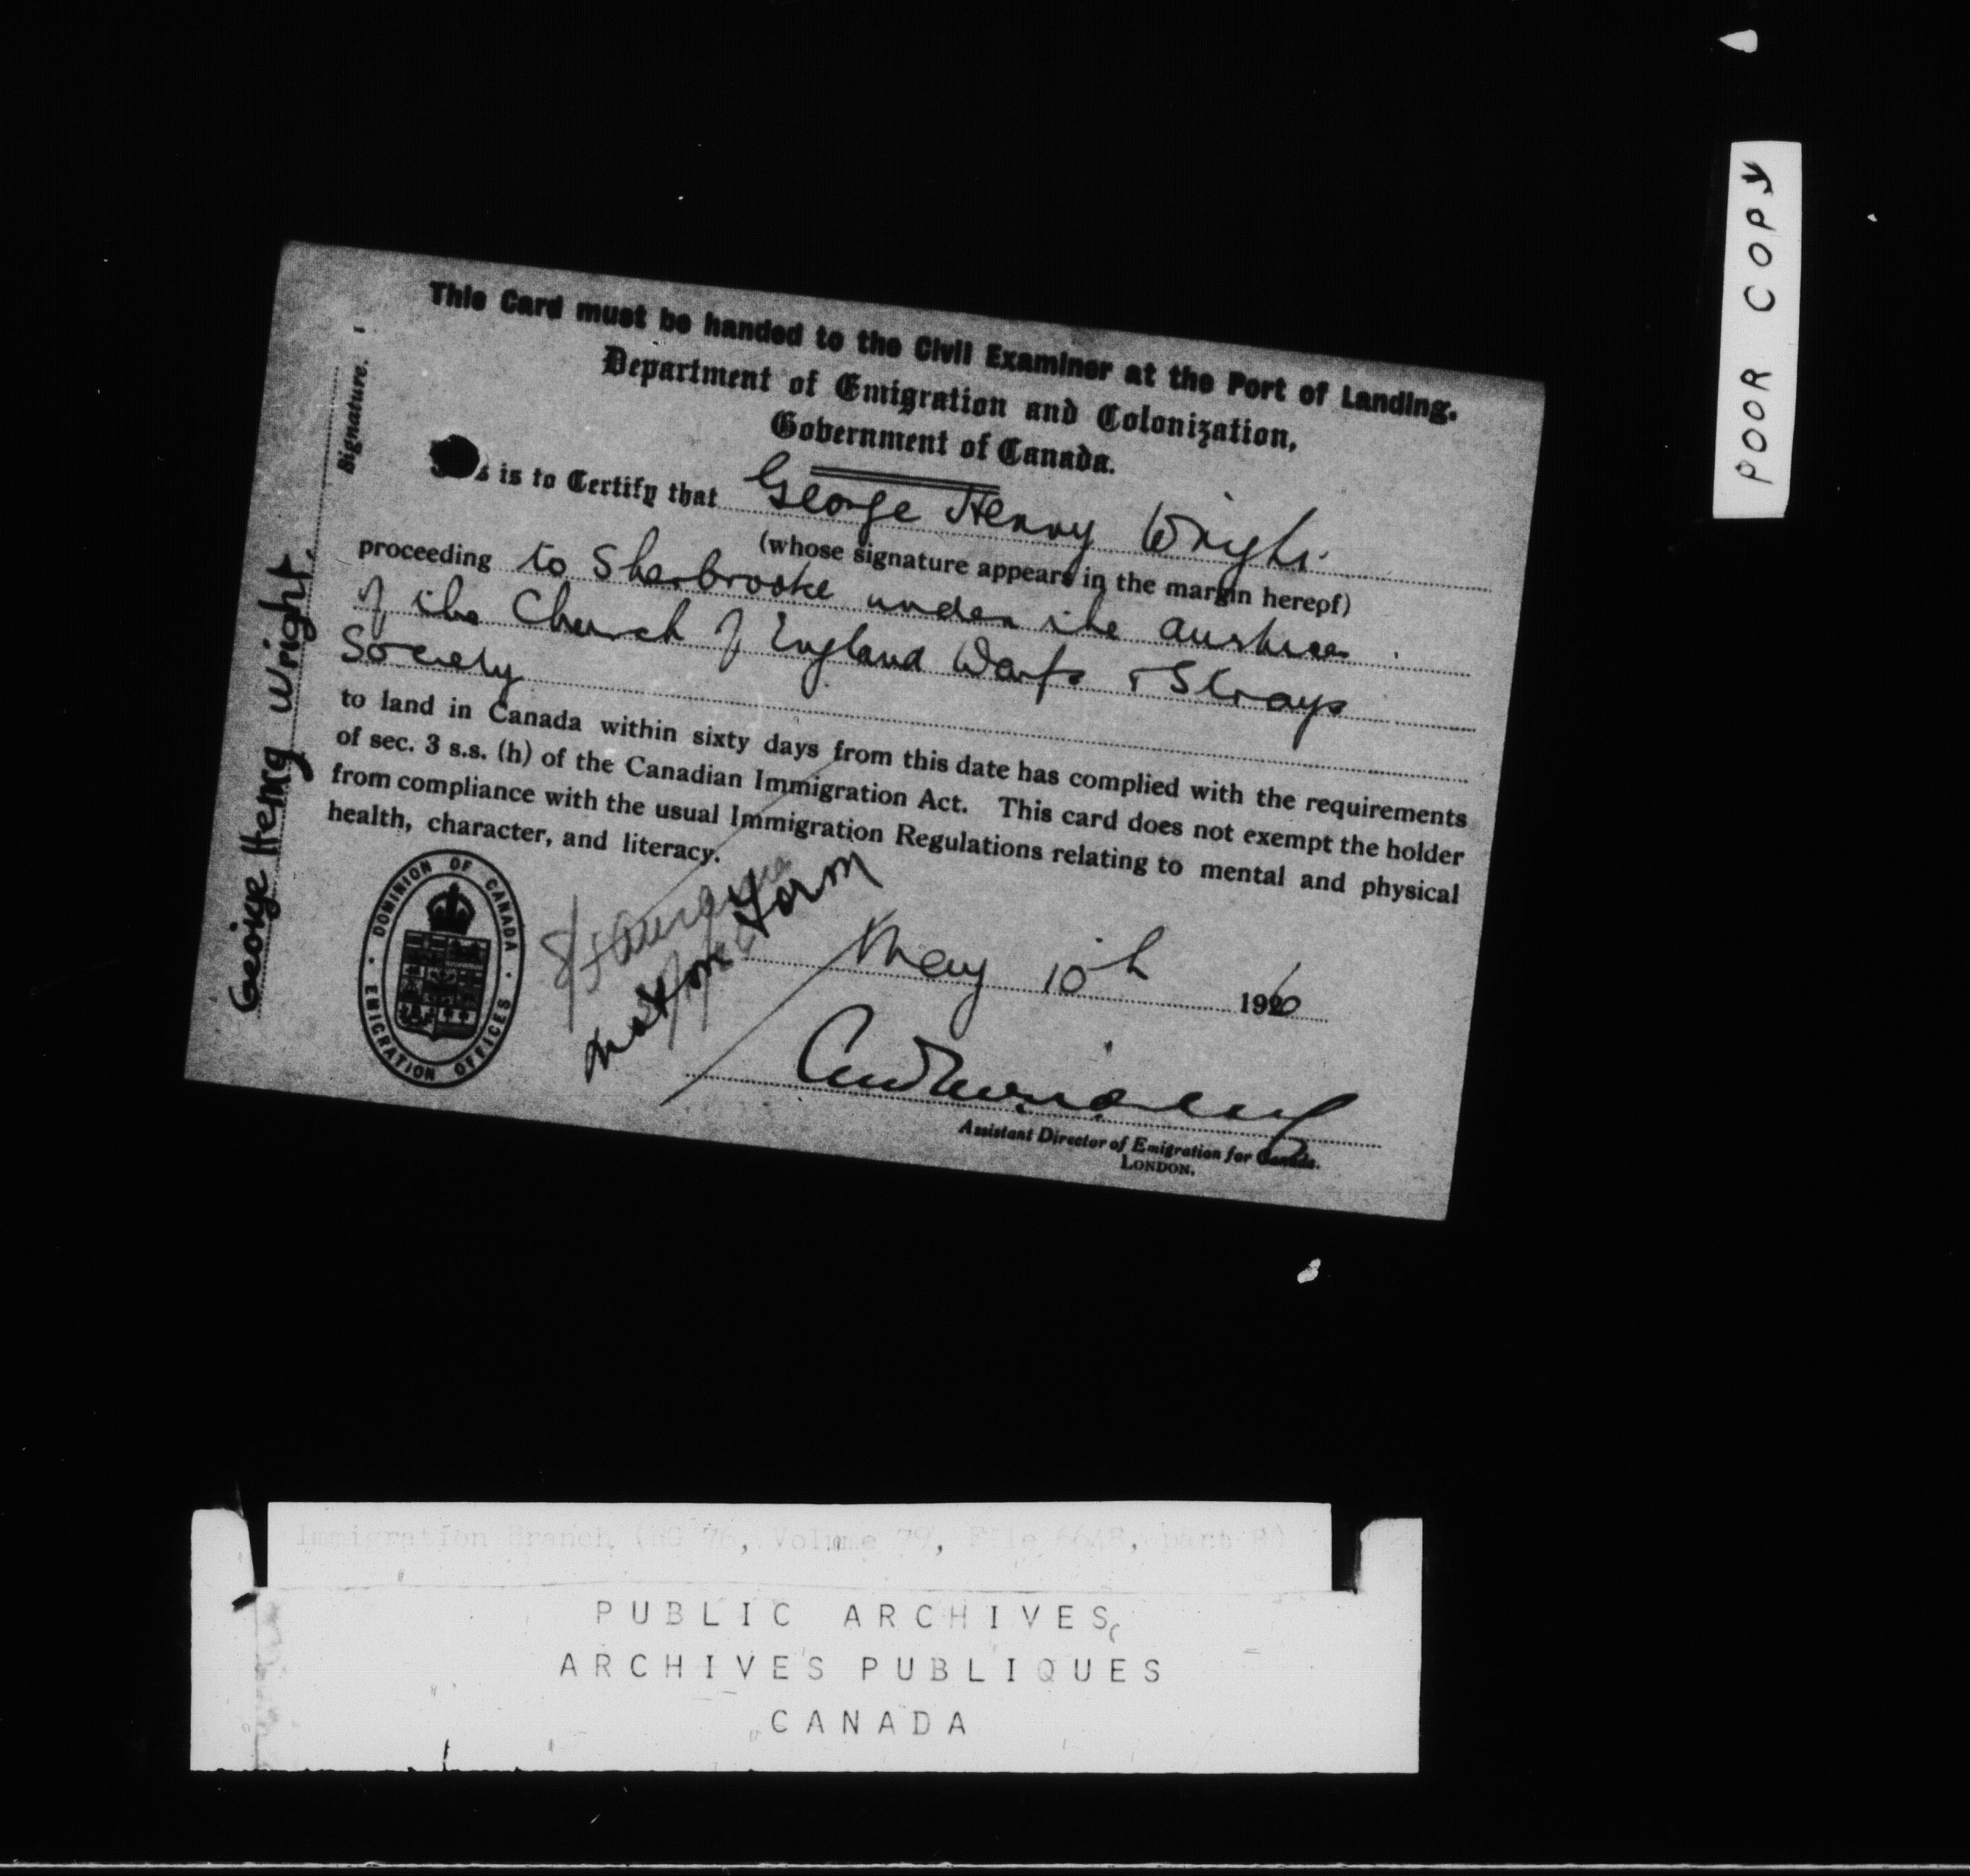 POOR COPY
This Card must be handed to the Civil Examiner at the Port of Landing.
Department of Emigration and Colonization,
Government of Canada.
is to Certify that George Henry Wright
(whose signature appears in the margin hereof)
proceeding to Sherbrooke under the auspices
of the Church of England Waifs & Strays
Society
to land in Canada within sixty days from this date has complied with the requirements
of sec. 3 s.s. (h) of the Canadian Immigration Act. This card does not exempt the holder
from compliance with the usual Immigration Regulations relating to mental and physical
health, character, and literacy.
Signature.
George Henry Wright.
DOMINION OF CANADA
EMIGRATION OFFICES
form
May 10th 1926
Assistant Director of Emigration for Canada.
LONDON.
Immigration Branch (RG 76, Volume 79, File 6648, part 8)
PUBLIC ARCHIVES
ARCHIVES PUBLIQUES
CANADA